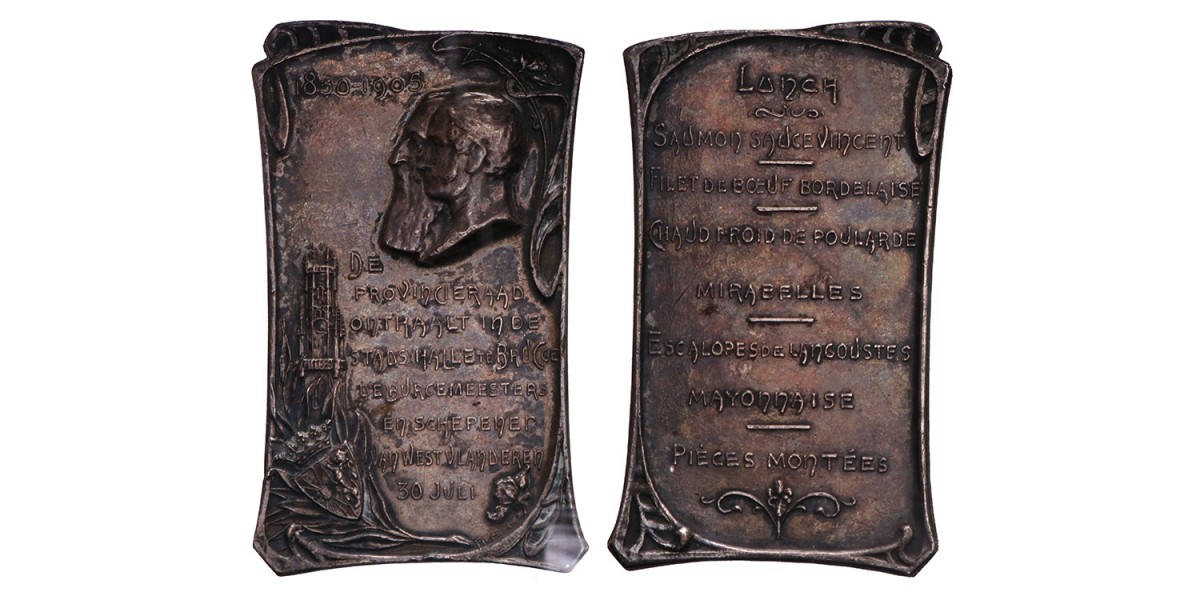 1830-1905
DE
PROVINCIERAAD
ONTHAALT IN DE
STADSHALLE TE BRUGGE
DE BURGEMEESTERS
EN SCHEPENEN
VAN WEST VLANDEREN
30 JULI
LUNCH
SAUMON SAUCE VINCENT
FILET DE BŒUF BORDELAISE
CHAUD FROID DE POULARDE
MIRABELLES
ESCALOPES DE LANGOUSTES
MAYONNAISE
PIÈCES MONTÉES